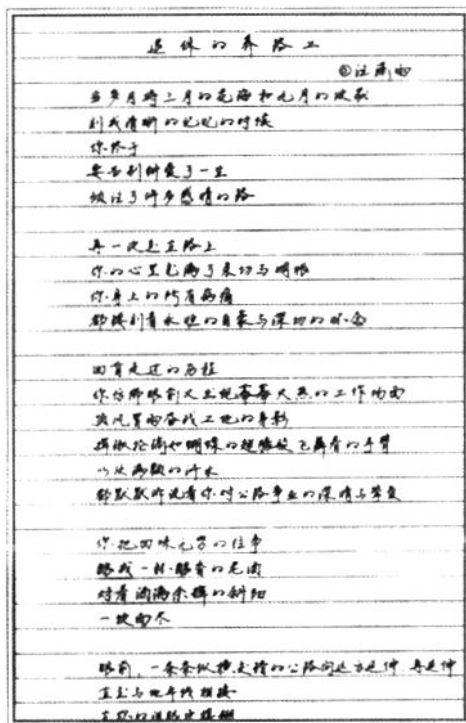 退休的养路工
当岁月将三月的花海和九月的收获
刻成清晰的记忆的时候
你终于
要告别钟爱了一生
倾注了许多感情的路
再一次走在路上
你的心里充满了亲切与明眼
你身上的所有病痛
都镌刻着永恒的自豪与深切的怀念
回首走过的历程
你仿佛眼前又出现幕幕火热的工作场面
顶风冒雨奋战工地的身影
挥锹抡镐如蝴蝶的翅膀般飞舞着的手臂
以及满额的汗水
都默默诉说着你对公路事业的深情与挚爱
你把回味无穷的往事
酿成一杯醇香的老酒
对着洒满余辉的斜阳
一饮而尽
眼前,一条条纵横交错的公路向远方延伸 再延伸
直至与地平线相接